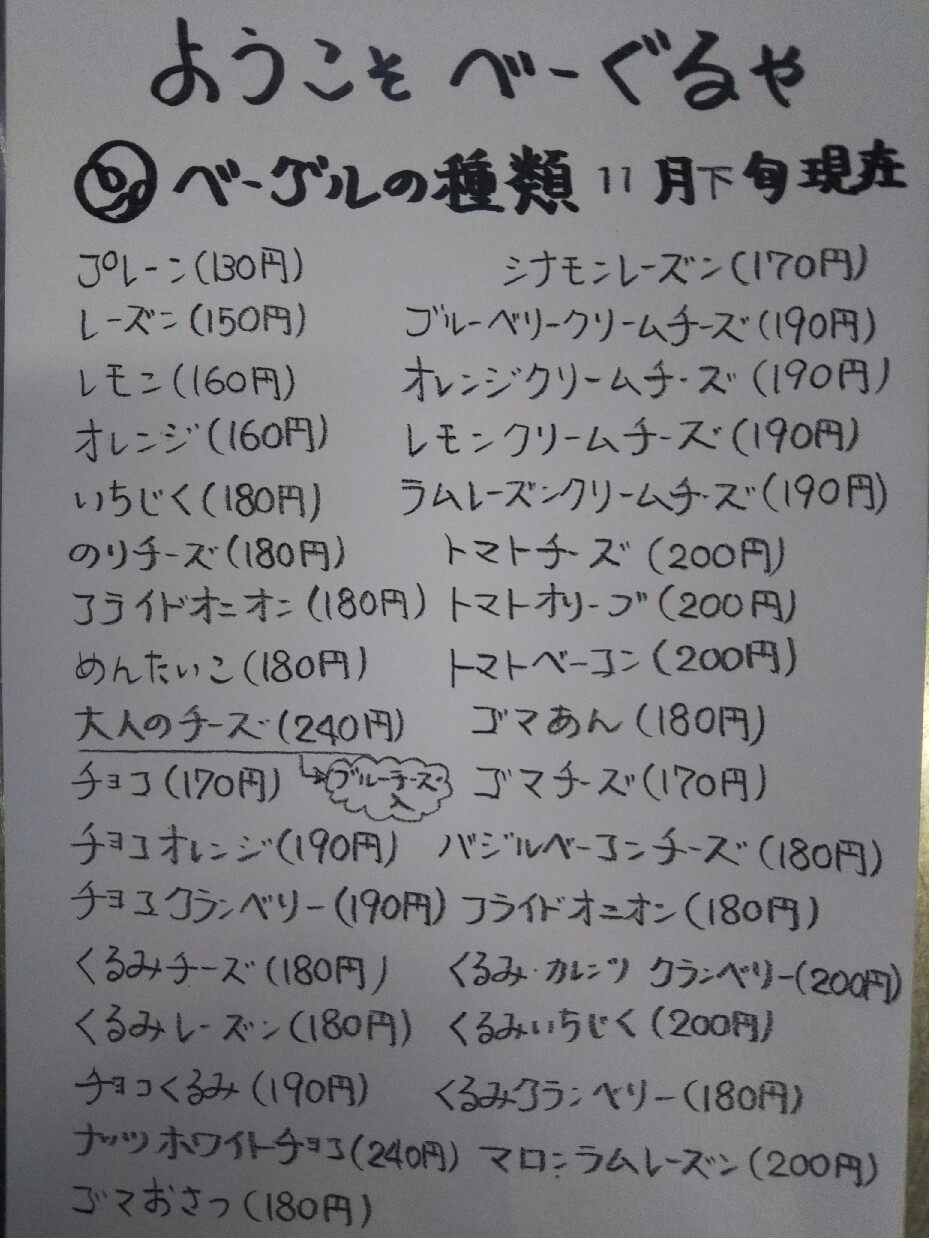 ようこそ べーぐるや
ベーグルの種類 11月下旬現在
プレーン(130円) シナモンレーズン(170円)
レーズン(150円) ブルーベリークリームチーズ(190円)
レモン(160円) オレンジクリームチーズ(190円)
オレンジ(160円) レモンクリームチーズ(190円)
いちじく(180円) ラムレーズンクリームチーズ(190円)
のりチーズ(180円) トマトチーズ(200円)
フライドオニオン(180円) トマトオリーブ(200円)
めんたいこ(180円) トマトベーコン(200円)
大人のチーズ(240円) ゴマあん(180円)
チョコ(170円) →ブルーチーズ入 ゴマチーズ(170円)
チョコオレンジ(190円) バジルベーコンチーズ(180円)
チョコクランベリー(190円) フライドオニオン(180円)
くるみチーズ(180円) くるみ・カレンツ クランベリー(200円)
くるみレーズン(180円) くるみいちじく(200円)
チョコくるみ(190円) くるみクランベリー(180円)
ナッツホワイトチョコ(240円) マロンラムレーズン(200円)
ゴマおさつ(180円)